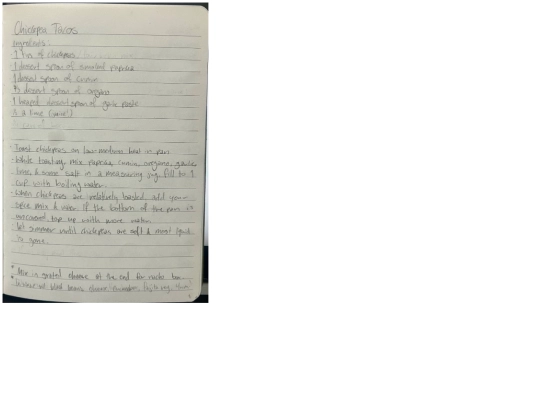 Chickpea Tacos
Ingredients:
- 2 tins of chickpeas
- 1 desert spoon of smoked paprika
- 1 desert spoon of cumin
- ½ desert spoon of oregano
- 1 heaped desert spoon of garlic paste
- ½ a lime (juice)
- Toast chickpeas on low-medium heat in pan
- While toasting, mix paprika, cumin, oregano, garlic
lime & some salt in a measuring jug, fill to 1
cup with boiling water.
- When chickpeas are relatively toasted add your
spice mix & water. If the bottom of the pan is
top up with more water.
- let simmer until chickpeas are soft & most liquid
is gone.
* Mix in grated cheese at the end for nacho
* black beans, cheese